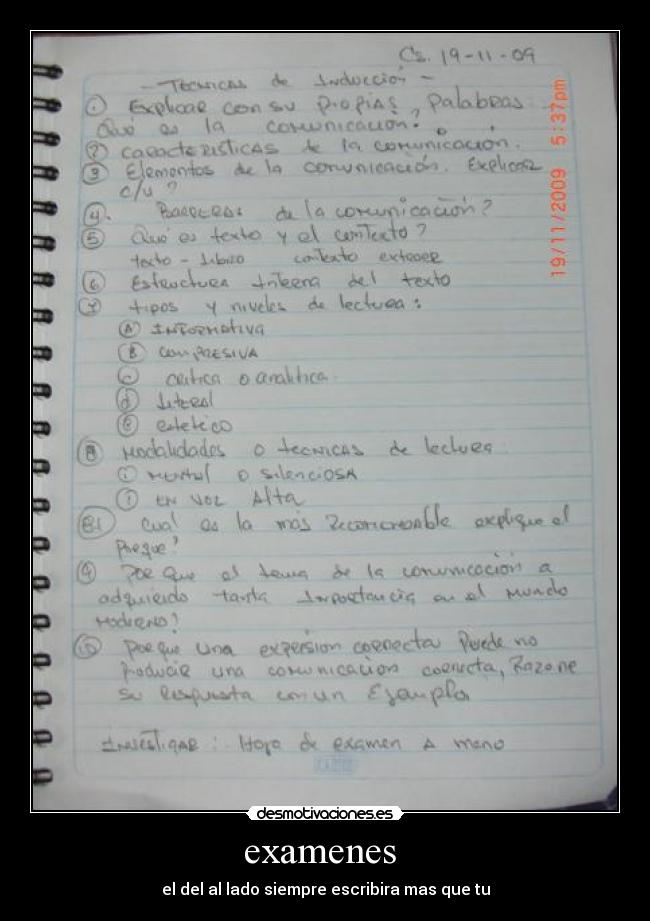 Cs. 19-11-09
- TECNICAS de Inducción -
① Explicar con su propias palabras
Qué es la comunicación.
② CARACTERISTICAS de la comunicación.
③ Elementos de la comunicación. Explicar
c/u ?
④. BARRERAS de la comunicación?
⑤ Qué es texto y el contexto?
texto - contexto
⑥ Estructura Interna del texto
⑦ tipos y niveles de lectura:
Ⓐ INFORMATIVA
Ⓑ COMPRESIVA
ⓒ critica o analitica.
ⓓ literal
ⓔ estetico
⑧ Modalidades o tecnicas de lectura
① Mental o silenciosa
① EN VOZ Alta
8.1 Cual es la más explique el
Porque?
⑨ Por que el tema de la comunicación a
adquirido tanta Importancia en el Mundo
Moderno?
⑩ porque una expersion correcta Puede no
producir una comunicación correcta, Razone
su Respuesta con un Ejemplo
INVESTIGAR: Hoja de examen A mano
19/11/2009 5:37pm
desmotivaciones.es
examenes
el del al lado siempre escribira mas que tu